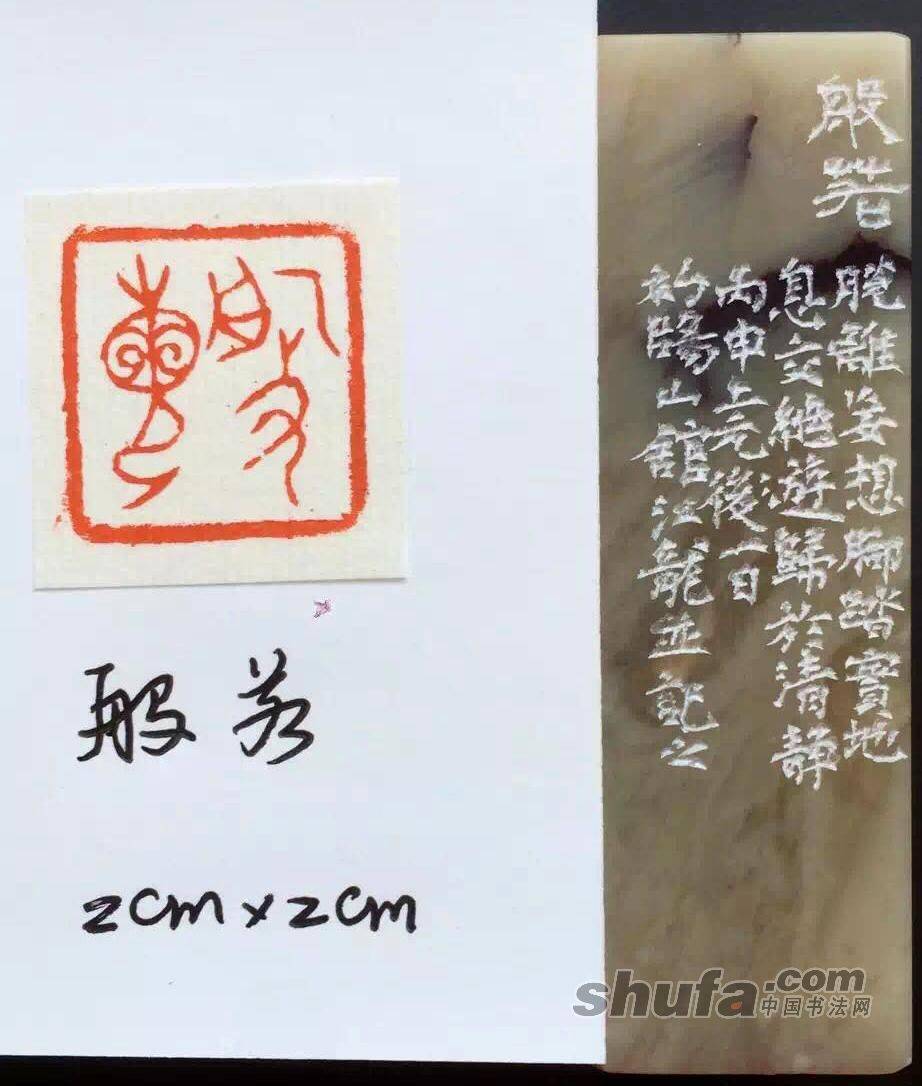 般若
般若
2cm×2cm
般若
脫離妄想腳踏實地
息交絕遊歸於清靜
丙申上元後一日
山館江龍並記之
shufa.com
中国书法网